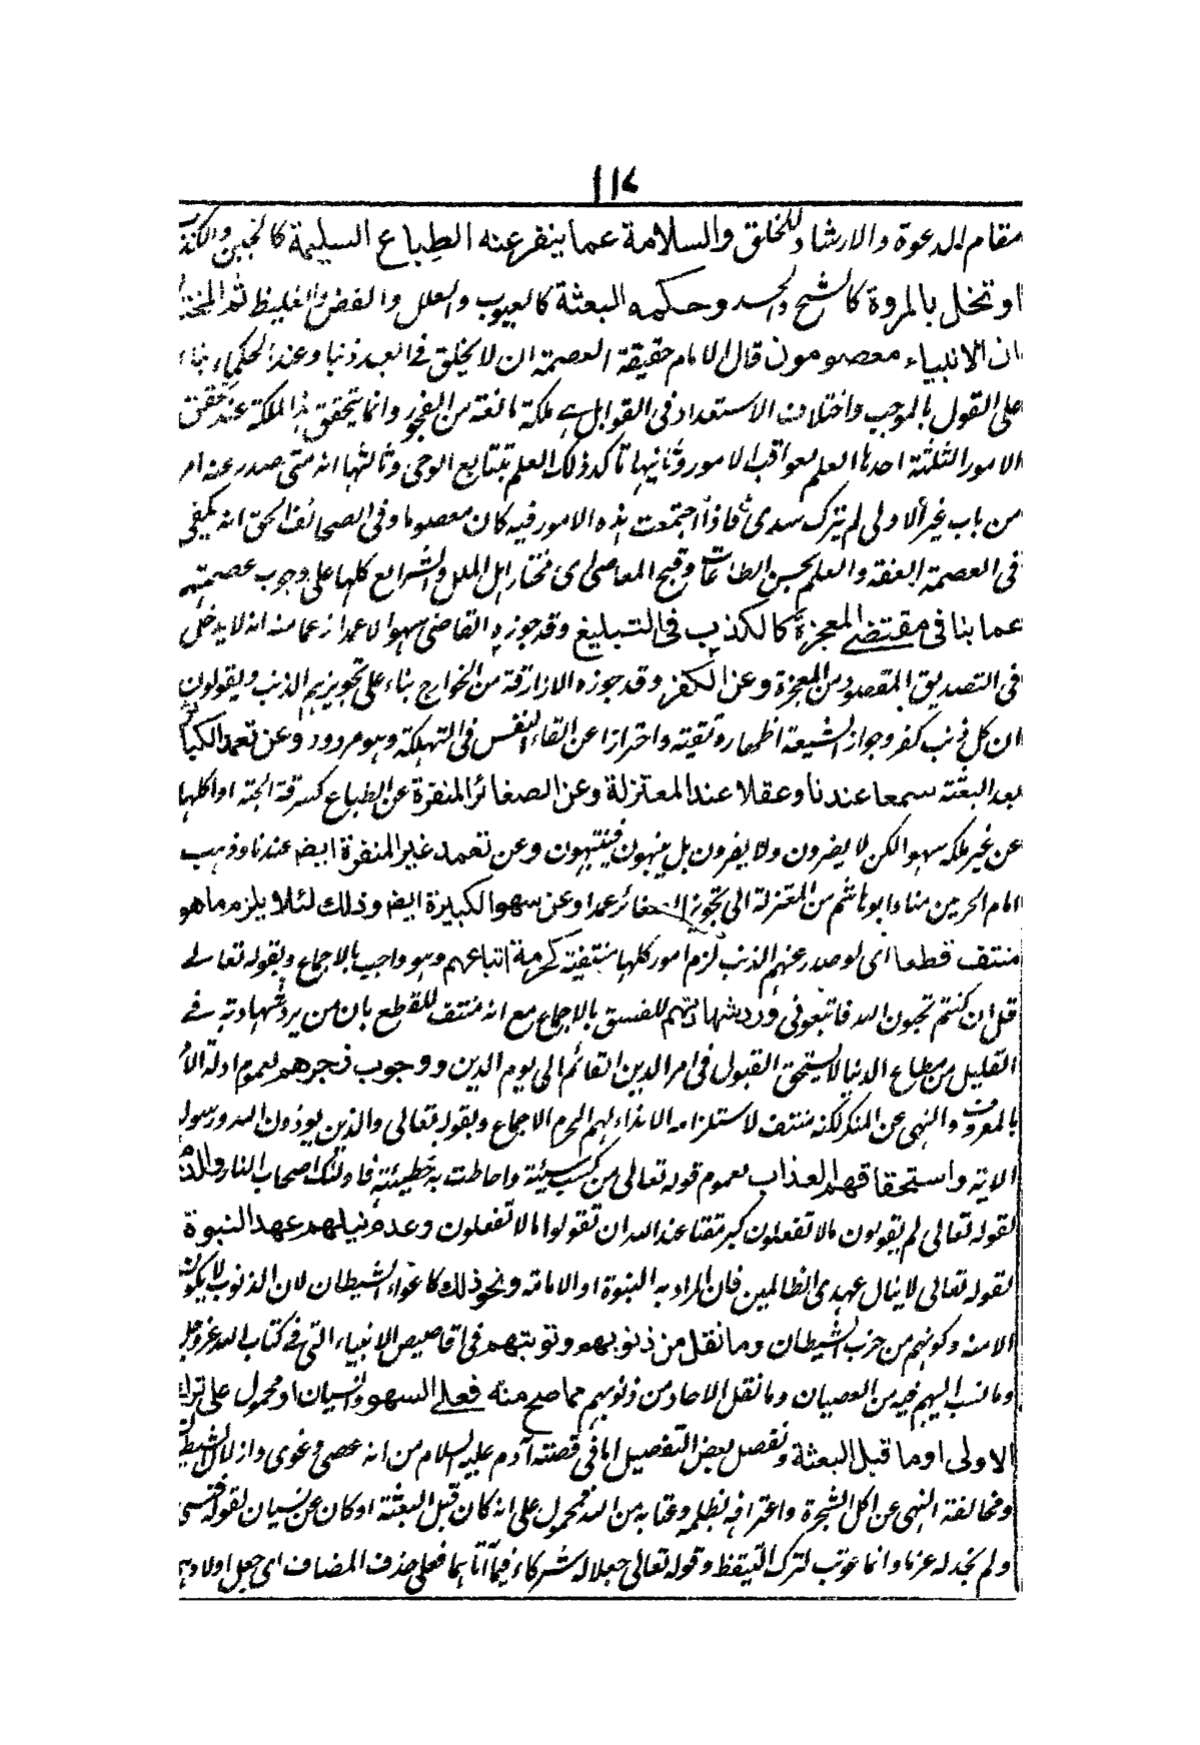 ١١٧
مقام الدعوة والارشاد للخلق والسلامة عما ينفر عنه الطباع السليمة كالجبن والكذب
او تخل بالمروة كالشح والحسد وحكمه البعثة كالعيوب والعلل والفض والغليظ ثم المختار
ان الانبياء معصومون قال الامام حقيقة العصمة ان لا يخلق في العبد ذنبا وعند الحكماء بناء
على القول بالموجب واختلاف الاستعداد في القوابل هي ملكة مانعة من الفجور وانما يتحقق هذا الملكة عند تحقق
الامور الثلثة احدها العلم بعواقب الامور وثانيها تاكد ذلك العلم بتتابع الوحي وثالثها انه متى صدر عنه امر
من باب غير الاولى لم يترك سدى فاذا اجتمعت هذه الامور فيه كان معصوما وفي الصحائف الحق انه يكفي
في العصمة العفة والعلم بحسن الطاعات وقبح المعاصي اي مختار اهل الملل والشرائع كلها على وجوب عصمتهم
عما ينافي مقتضى المعجزة كالكذب في التبليغ وقد جوزه القاضي سهوا لا عمدا زعما منه انه لا يدخل
في التصديق المقصود من المعجزة وعن الكفر وقد جوزه الازارقة من الخوارج بناء على تجويزهم الذنب ويقولون
ان كل ذنب كفر وجواز الشيعة اظهاره تقية واحترازا عن القاء النفس في التهلكة وهو مردود وعن تعمد الكبائر
بعد البعثة سمعا عندنا وعقلا عند المعتزلة وعن الصغائر المنفرة عن الطباع كسرقة الحبة او اكلها
عن غير ملكه سهوا لكن لا يضرون ولا يقرون بل ينبهون فينتبهون وعن تعمد غير المنفرة ايضا عندنا وذهب
امام الحرمين منا وابو هاشم من المعتزلة الى تجويز الصغائر عمدا وعن سهو الكبيرة ايضا وذلك لئلا يلزم ما هو
منتف قطعا اي لو صدر عنهم الذنب لزم امور كلها منتفية كحرمة اتباعهم وهو واجب بالاجماع وبقوله تعالى
قل ان كنتم تحبون الله فاتبعوني ورد شهادتهم للفسق بالاجماع مع انه منتف للقطع بان من يرد شهادته في
القليل من متاع الدنيا لا يستحق القبول في امر الدين القائم الى يوم الدين ووجوب زجرهم لعموم ادلة الامر
بالمعروف والنهي عن المنكر لكنه منتف لاستلزامه الايذاء لهم المحرم الاجماع وبقوله تعالى والذين يؤذون الله ورسوله
الاية واستحقاقهم العذاب بعموم قوله تعالى من كسب سيئة واحاطت به خطيئته فاولئك اصحاب النار
لقوله تعالى لم يقولون ما لا تفعلون كبر مقتا عند الله ان تقولوا ما لا تفعلون وعدم نيلهم عهد النبوة
لقوله تعالى لا ينال عهدي الظالمين فان المراد به النبوة او الامامة ونحو ذلك كاغواء الشيطان لان الذنوب لا يكون
الا منه وكونهم من حزب الشيطان وما نقل من ذنوبهم وتوبتهم في اقاصيص الانبياء التي في كتاب الله عز وجل
وما نسب اليهم فيه من العصيان وما نقل الاحاد من ذنوبهم مما صح منه فعلى السهو والنسيان او محمول على ترك
الاولى او ما قبل البعثة وتفصل بعض التفصيل اما في قصة آدم عليه السلام من انه عصى وغوى وازلال الشيطان
ومخالفة النهي عن اكل الشجرة واعترافه بظلمه وعتابه من الله فمحمول على انه كان قبل البعثة او كان عن نسيان لقوله فنسي
ولم نجد له عزما وانما عوتب لترك التيقظ وقوله تعالى جعلا له شركاء فيما آتاهما فعلى حذف المضاف اي جعل اولادهما